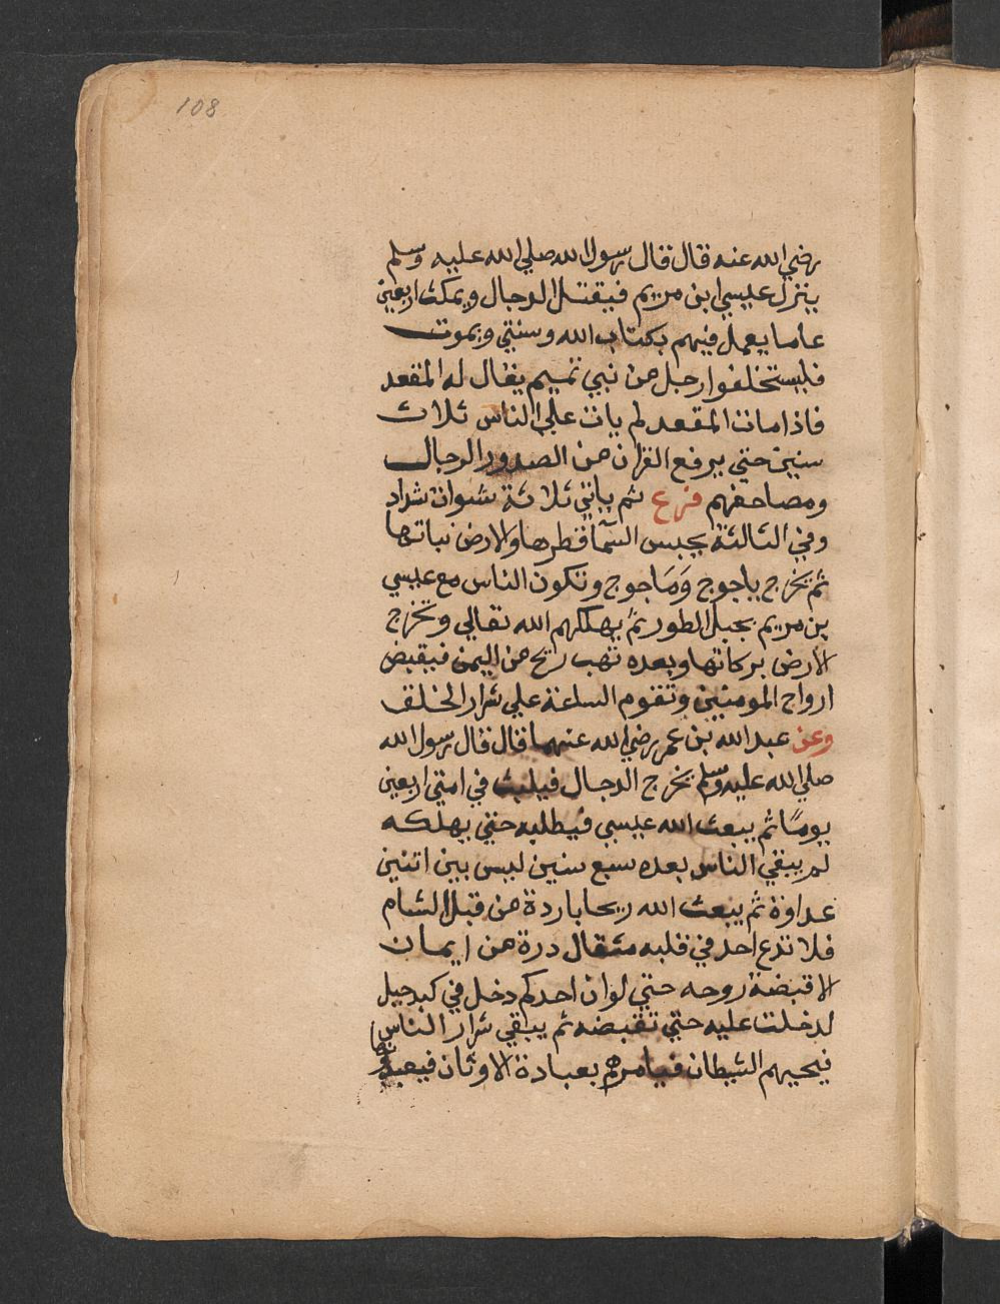 108
رضي الله عنه قال قال رسول الله صلي الله عليه وسلم
ينزل عيسي ابن مريم فيقتل الدجال ويمكث اربعين
عاما يعمل فيهم بكتاب الله وسنتي ويموت
فليستخلفوا رجل من نبي تميم يقال له المقعد
فاذا مات المقعد لم يات علي الناس ثلاث
سنين حتي يرفع القران من الصدور الرجال
ومصاحفهم فرع ثم ياتي ثلاثة سنوات شداد
وفي الثالثة يحبس السما قطرها والارض نباتها
ثم يخرج ياجوج وماجوج وتكون الناس مع عيسي
بن مريم بجبل الطور ثم يهلكهم الله تعالي وتخرج
الارض بركاتها وبعده تهب ريح من اليمن فيقبض
ارواح المومنين وتقوم الساعة علي شرار الخلق
وعن عبد الله بن عمر رضي الله عنهما قال قال رسول الله
صلي الله عليه وسلم يخرج الدجال فيلبث في امتي اربعين
يوما ثم يبعث الله عيسي فيطلبه حتي يهلكه
لم يبقي الناس بعده سبع سنين ليس بين اتنين
عداوة ثم يبعث الله ريحا باردة من قبل الشام
فلا تدع احد في قلبه مثقال درة من ايمان
الا قبضة روحه حتي لو ان احدكم دخل في كبد جبل
لدخلت عليه حتي تقبضه ثم يبقي شرار الناس
فيجيهم الشيطان فيامرهم بعبادة الاوثان